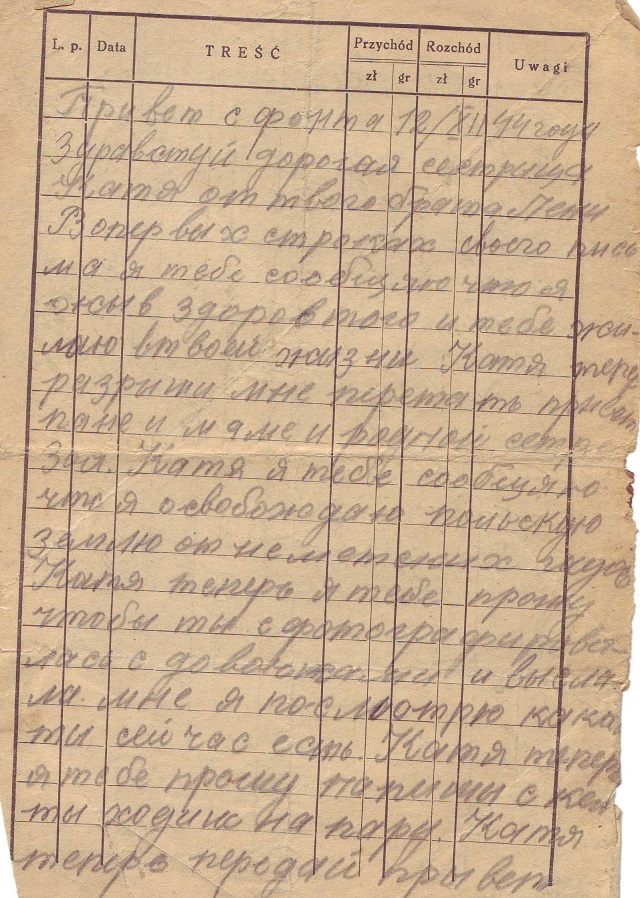 L. p. Data TREŚĆ Przychód Rozchód Uwagi
zł gr zł gr
Привет с фронта 12/XII 44 года
Здравствуй дорогая сестрица
Катя от твого брата Лени
Вопервых строках своего пись
ма я тебе сообщяю что я
жыв здоров того и тебе жи-
лаю втвоей жизни Катя тепе
разриши мне перетать привет
папе и маме и родной сетре
Зои. Катя я тебе сообщяю
что я освобождаю польскую
землю от неметских гадов
Катя теперь я тебе прошу
чтобы ты сфотографирова
лась с и высла-
ла мне я посмотрю кака
ты сейчас есть. Катя теперь
я тебе прошу напиши с кем
ты ходиш на пару. Катя
теперь передай привет